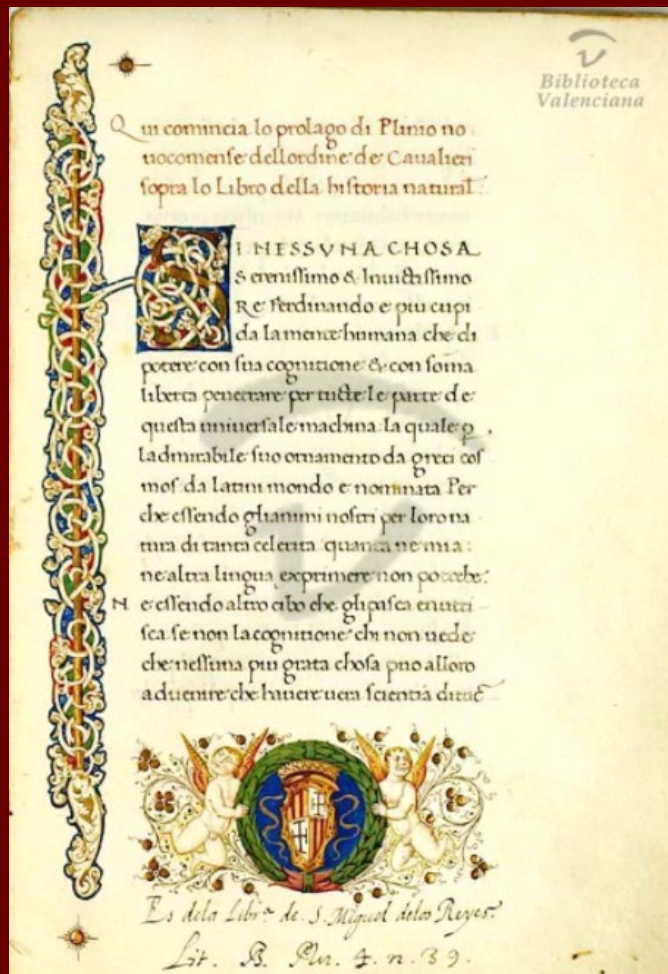 Biblioteca
Valenciana
Qui comincia lo prologo di Plinio no
uocomense dellordine de Caualieri
sopra lo Libro della historia natural
I NESSVNA CHOSA
Serenissimo & Inuictissimo
Re Ferdinando e piu cupi
da la mente humana che di
potere con sua cognitione & con soma
liberta penetrare per tutte le parte de
questa uniuersale machina la quale p
ladmirabile suo ornamento da greci cos
mos da latini mondo e nominata Per
che essendo glianimi nostri per loro na
tura di tanta celerita quanta ne mia
ne altra lingua exprimere non potrebbe
N e essendo altro cibo che gli pasca e nutri
sca se non la cognitione chi non uede
che nessuna piu grata chosa puo alloro
aduenire che hauere uera scientia di tuc
Es dela Libr.ª de S. Miguel delos Reyes.
Lit. B. Plu. 4. n. 39.